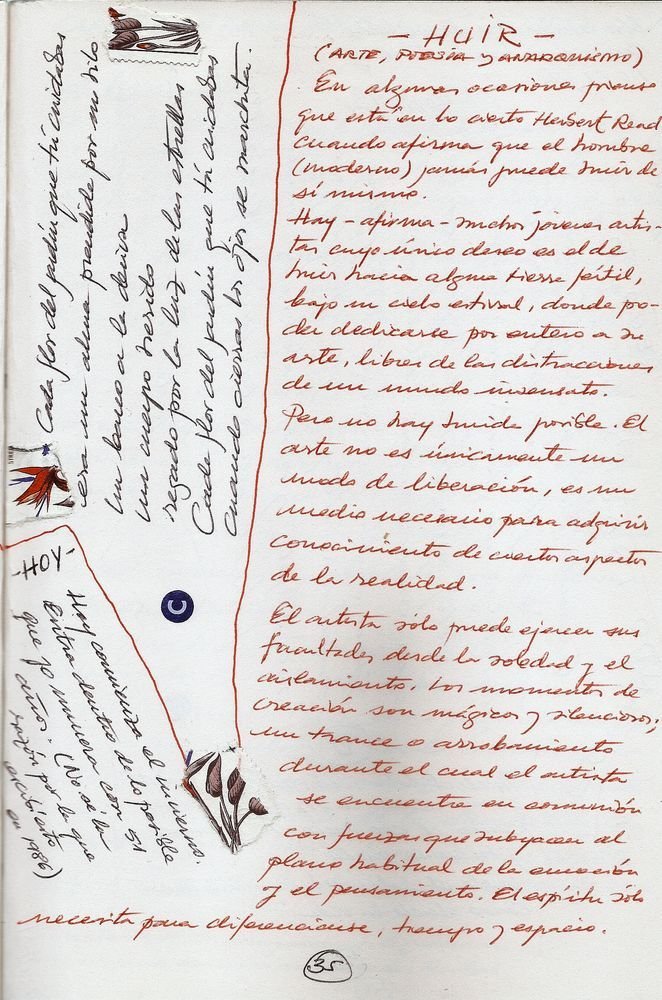 Cada flor del jardín que tú cuidabas
era un alma prendida por un hilo
Un barco a la deriva
Un cuerpo herido
segado por la luz de las estrellas
Cada flor del jardín que tú cuidabas
cuando cierras los ojos se marchita.
- HOY -
Hoy comienza el invierno.
Entra dentro de lo posible
que yo muriera con 51
años. (No sé la
razón por la que
escribí esto
en 1986)
C
- HUIR -
(ARTE, POESÍA y ANARQUISMO)
En algunas ocasiones pienso
que está en lo cierto Herbert Read
cuando afirma que el hombre
(moderno) jamás puede huir de
sí mismo.
Hay - afirma - muchos jóvenes artis-
tas cuyo único deseo es el de
huir hacia alguna tierra fértil,
bajo un cielo estival, donde po-
der dedicarse por entero a su
arte, libres de las distracciones
de un mundo insensato.
Pero no hay huida posible. El
arte no es únicamente un
modo de liberación, es un
medio necesario para adquirir
conocimiento de ciertos aspectos
de la realidad.
El artista sólo puede ejercer sus
facultades desde la soledad y el
aislamiento. Los momentos de
creación son mágicos y silenciosos;
un trance o arrobamiento
durante el cual el artista
se encuentra en comunión
con fuerzas que subyacen al
plano habitual de la emoción
y el pensamiento. El espíritu sólo
necesita para diferenciarse, tiempo y espacio.
35